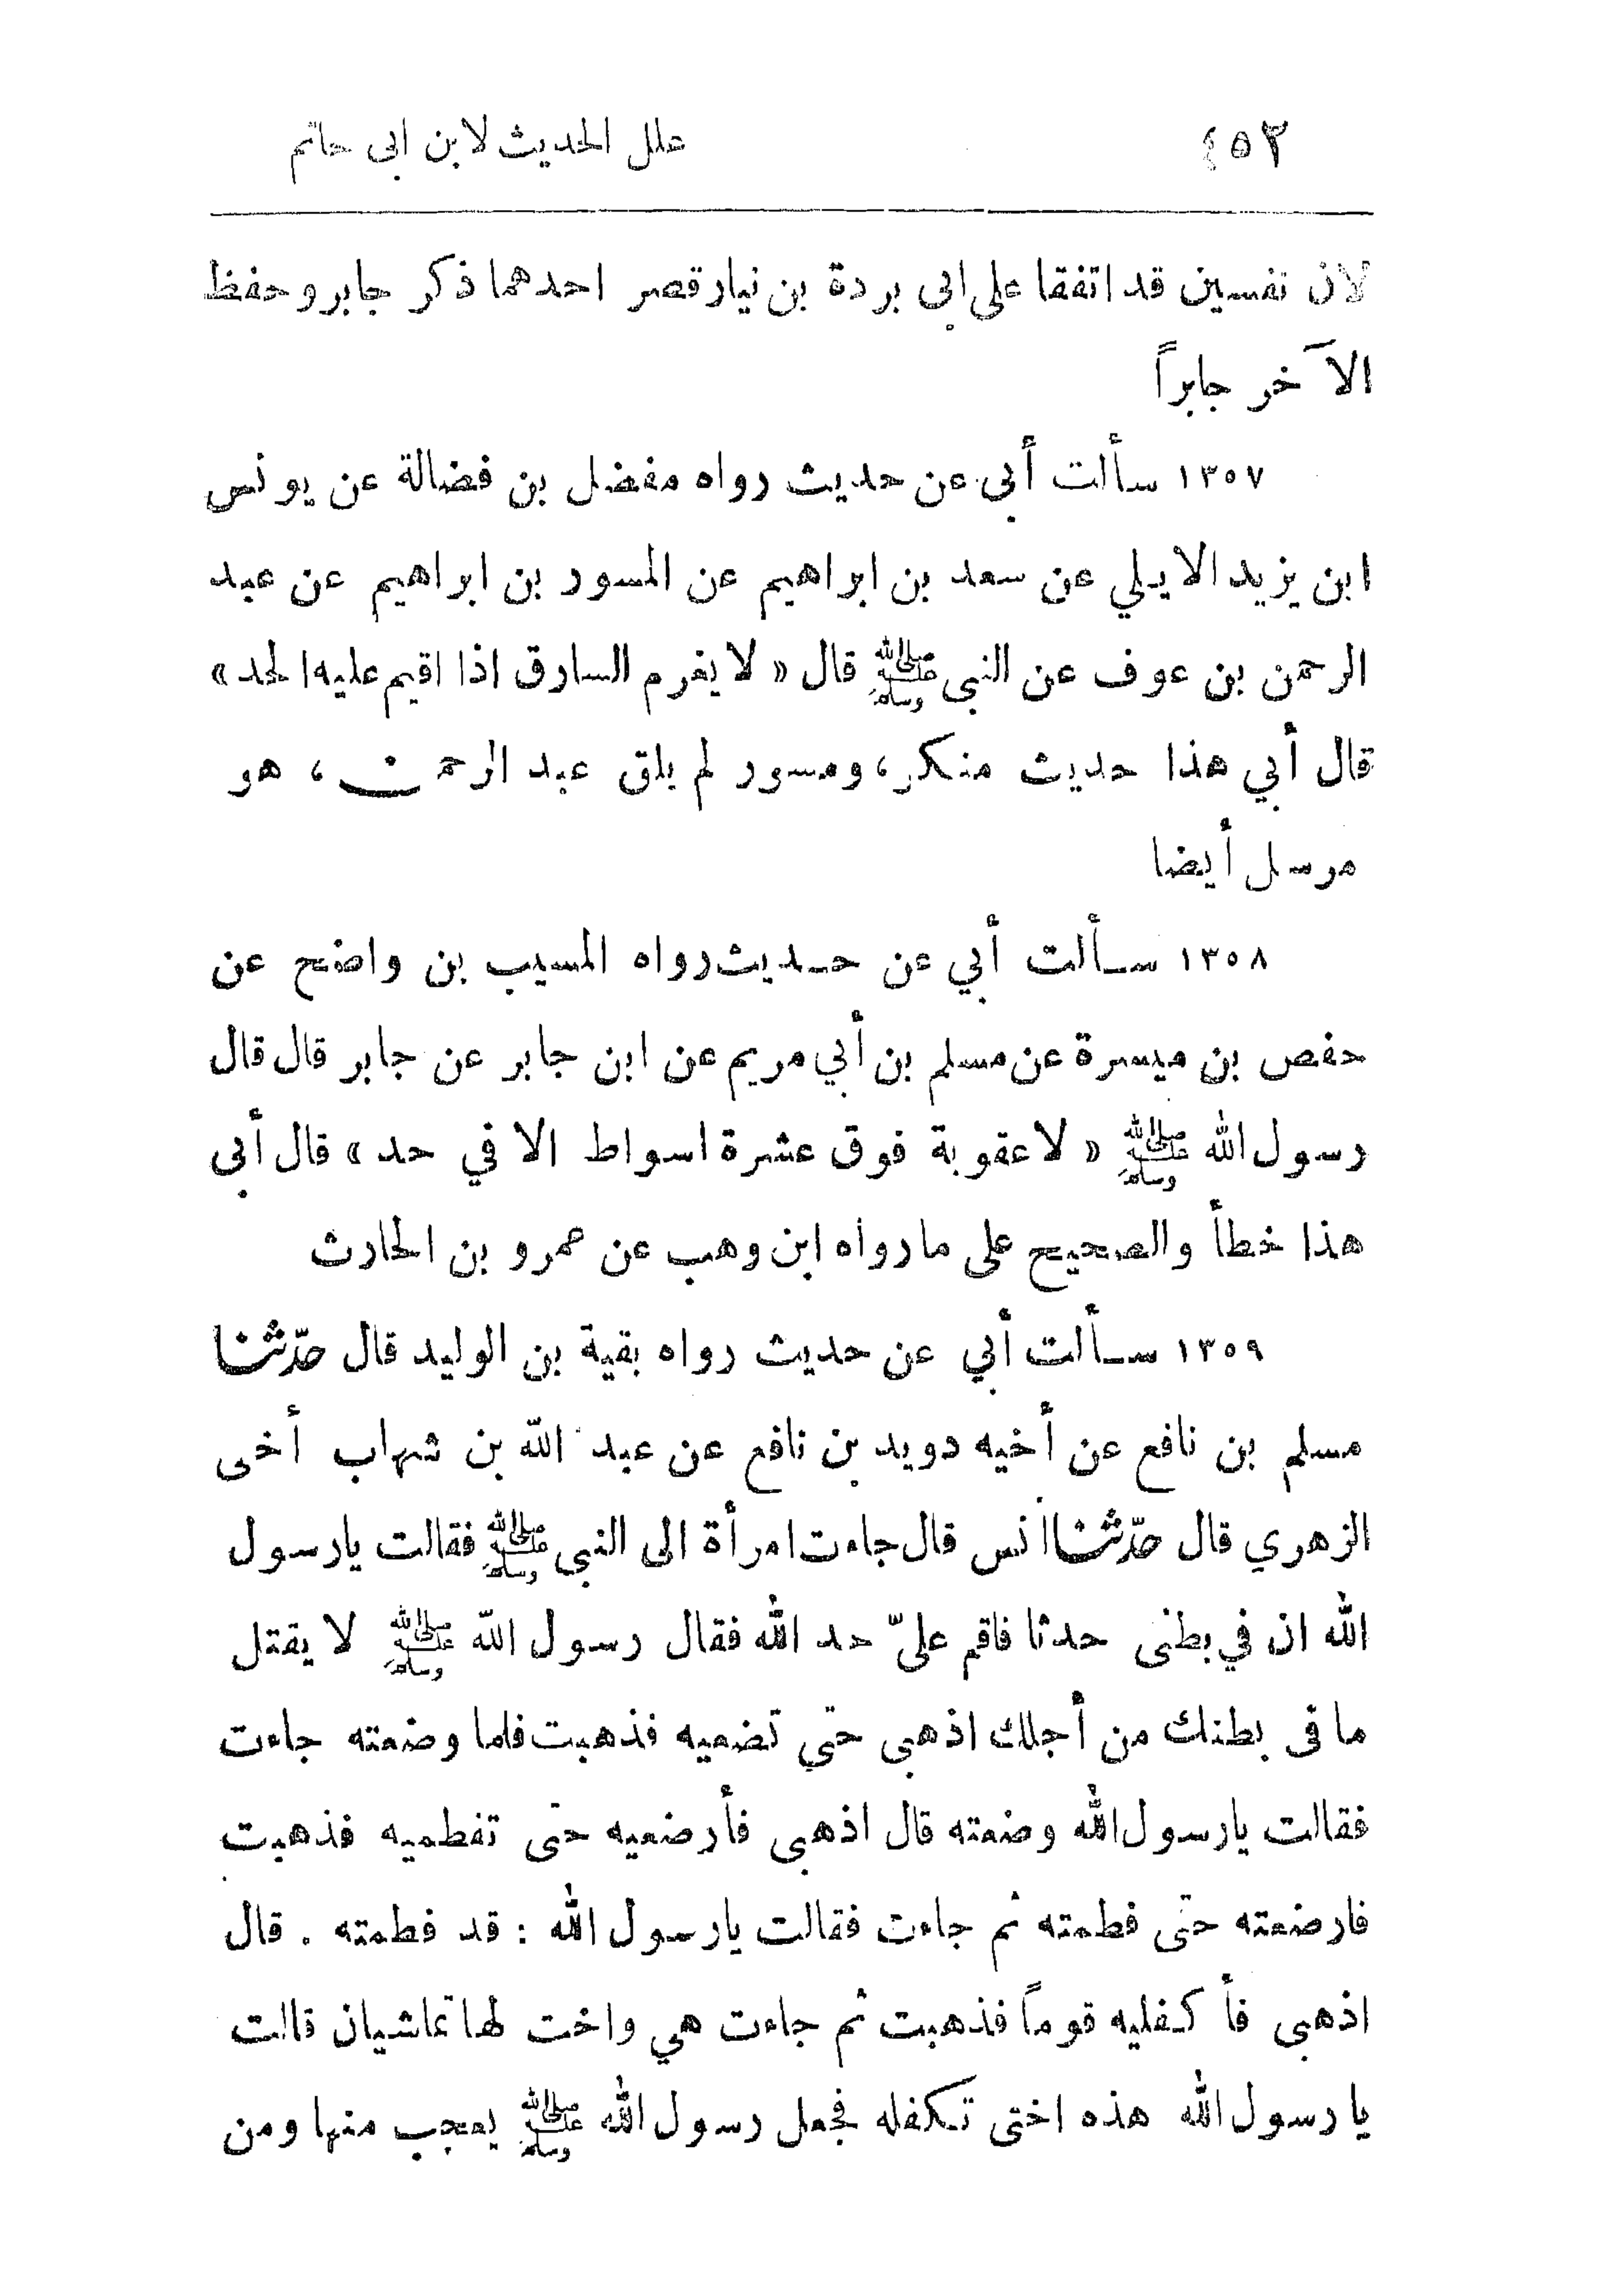 ٤٥٢ علل الحديث لابن ابى حاتم
لان نفسين قد اتفقا على ابى بردة بن نيار قصر احدهما ذكر جابر وحفظ
الآخر جابراً
١٣٥٧ سألت أبى عن حديث رواه مفضل بن فضالة عن يونس
ابن يزيد الايلي عن سعد بن ابراهيم عن المسور بن ابراهيم عن عبد
الرحمن بن عوف عن النبى ﷺ قال « لا يغرم السارق اذا اقيم عليه الحد »
قال أبي هذا حديث منكر ، ومسور لم يلق عبد الرحمن ، هو
مرسل أيضا
١٣٥٨ سألت أبي عن حديث رواه المسيب بن واضح عن
حفص بن ميسرة عن مسلم بن أبي مريم عن ابن جابر عن جابر قال قال
رسول الله ﷺ « لا عقوبة فوق عشرة اسواط الا في حد » قال أبى
هذا خطأ والصحيح على ما رواه ابن وهب عن عمرو بن الحارث
١٣٥٩ سألت أبي عن حديث رواه بقية بن الوليد قال حدّثنا
مسلم بن نافع عن أخيه دويد بن نافع عن عبد الله بن شهاب أخى
الزهري قال حدّثنا انس قال جاءت امرأة الى النبى ﷺ فقالت يارسول
الله ان في بطنى حدثا فاقم علىّ حد الله فقال رسول الله ﷺ لا يقتل
ما فى بطنك من أجلك اذهبى حتي تضعيه فذهبت فلما وضعته جاءت
فقالت يارسول الله وضعته قال اذهبى فأرضعيه حتى تفطميه فذهبت
فارضعته حتى فطمته ثم جاءت فقالت يارسول الله : قد فطمته . قال
اذهبى فأكفليه قوماً فذهبت ثم جاءت هي واخت لها تماشيان قالت
يا رسول الله هذه اختى تكفله فجعل رسول الله ﷺ يعجب منها ومن